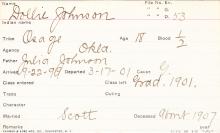 File No. En.
Name Dollie Johnson " " a 53
Indian name " " a
Tribe Osage Age 18 Blood 1/2
Agency Okla.
Father Julia Johnson
Arrived 9-22-98 Departed 3-17-01 Cause
Class entered Grad. 1901.
Trades Outing
Character
Married Scott Deceased about 1907
Remarks